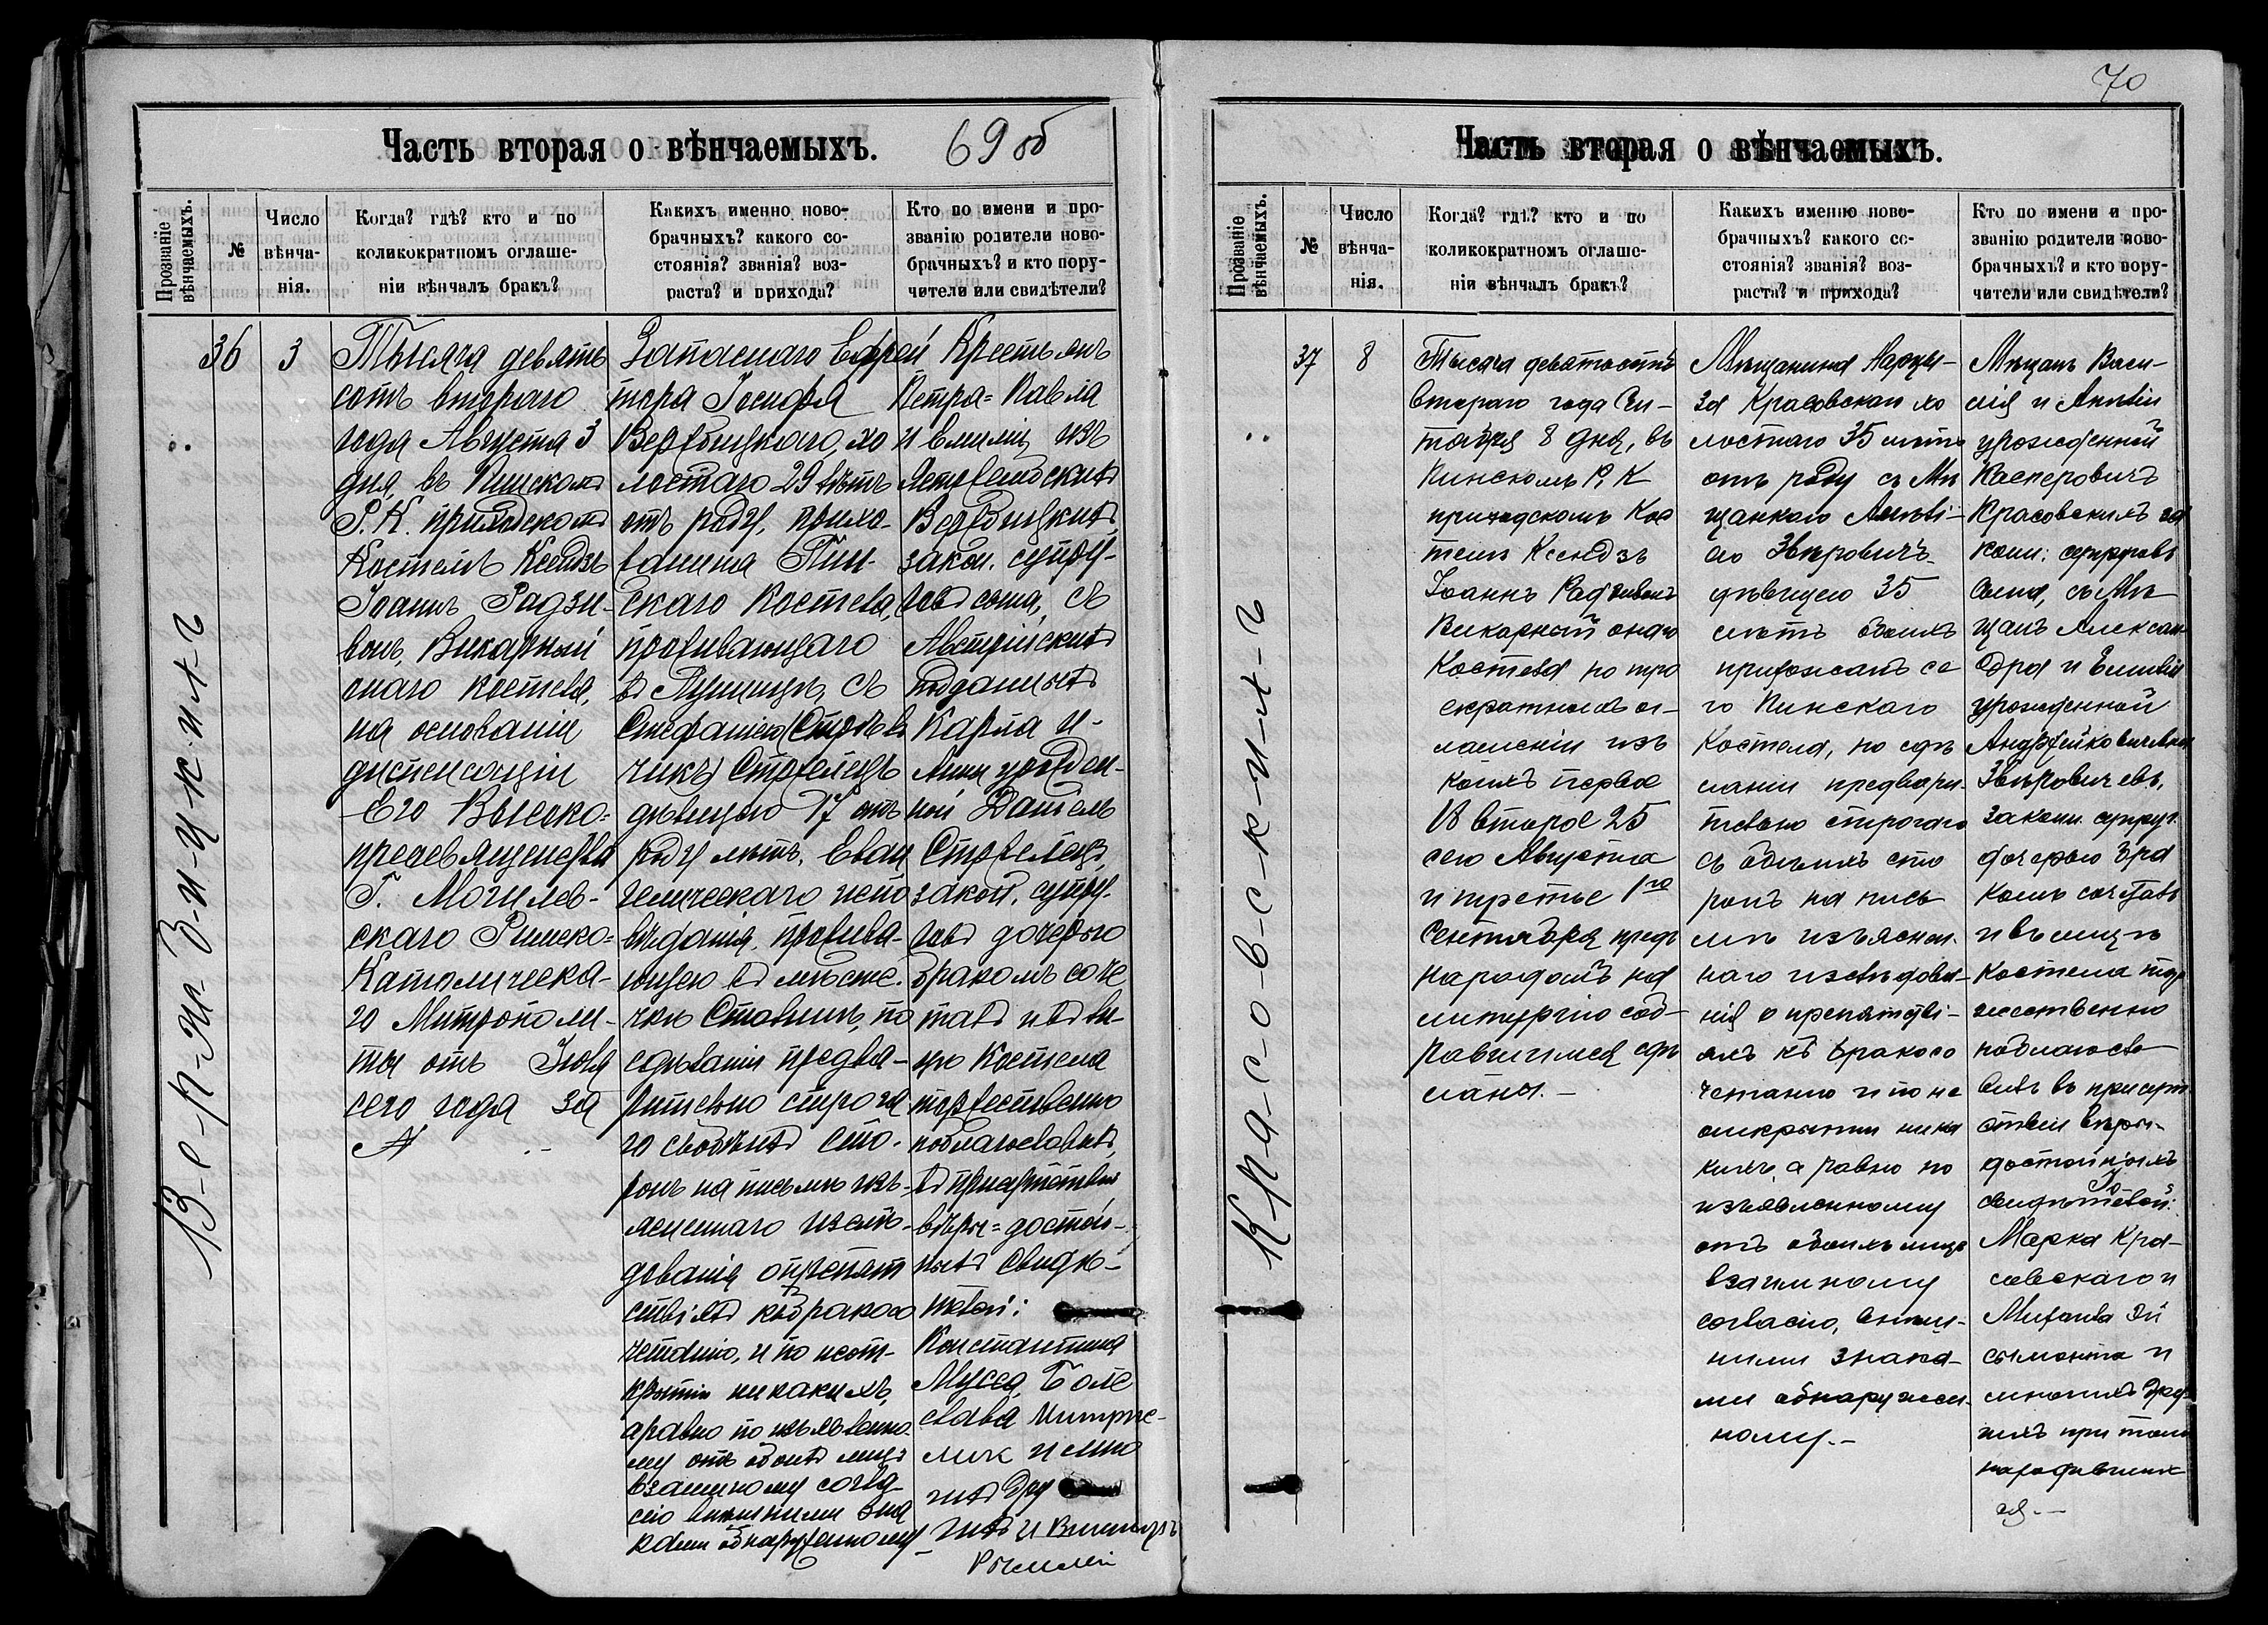 Часть вторая о вѣнчаемыхъ. 69 об
Прозваніе вѣнчаемыхъ.
№
Число
вѣнча-
нія.
Когда? гдѣ? кто и по
коликократномъ оглаше-
ніи вѣнчалъ бракъ?
Какихъ именно ново-
брачныхъ? какого со-
стоянія? званія? воз-
раста? и прихода?
Кто по имени и про-
званію родители ново-
брачныхъ? и кто пору-
чители или свидѣтели?
36
3
Тысяча девять
сотъ второго
года Августа 3
дня, въ Пинскомъ
Р. К. приходскомъ
Костелѣ Ксендзъ
Іоаннъ Радзи-
вонъ, Викарный
онаго костела,
на основаніи
диспенсаціи
Его Высоко-
преосвященства
Г. Могилев-
скаго Римско-
Католическа-
го Митрополи-
та отъ Іюля
сего года за
№
Запаснаго
Іосифа
холостаго 29 лѣтъ
отъ роду, прихо-
жанина Пин-
скаго Костела,
проживающаго
въ съ
Стефаніею
Стрѣлецъ
дѣвицею 17 отъ
роду лѣтъ, Еван
гелическаго испо
вѣданія, прожива-
ющею въ мѣсте-
чкѣ по
сдѣланіи предва-
рительно строга
го съ обѣихъ сто-
ронъ на письмѣ изъ-
ясненнаго изслѣ-
дованія о препят
ствіяхъ къ бракосо
четанію, и по неот-
крытіи никакихъ,
а равно по изъявленно
му отъ обоихъ лицъ
взаимному согла
сію внѣшними зна
ками обнаруженному
Крестьянъ
Петра-Павла
и Емиліи, изъ
закон. супру-
говъ сына, съ
Австрійскихъ
подданныхъ
Карла и
Анны урожден-
ной
закон. супру-
говъ дочерью
бракомъ соче
талъ и въ ли-
цѣ Костела
торжественно
поблагословилъ,
въ присутствіи
вѣры-достой-
ныхъ свидѣ-
телей:
Константина
славa
и мно
гихъ дру
гихъ и
В-е-р-ж-б-и-ц-к-и-х-ъ
70
Часть вторая о вѣнчаемыхъ.
Прозваніе вѣнчаемыхъ.
№
Число
вѣнча-
нія.
Когда? гдѣ? кто и по
коликократномъ оглаше-
ніи вѣнчалъ бракъ?
Какихъ именно ново-
брачныхъ? какого со-
стоянія? званія? воз-
раста? и прихода?
Кто по имени и про-
званію родители ново-
брачныхъ? и кто пору-
чители или свидѣтели?
37
8
Тысяча девятьсотъ
второго года Сен-
тября 8 дня, въ
Пинскомъ Р. К
приходскомъ Кос
телѣ Ксендзъ
Іоаннъ Радзивонъ
Викарный онаго
Костела по тро
екратномъ ог-
лашеніи изъ
коихъ первое
18 второе 25
сего Августа
и третье 1го
Сентября предъ
народомъ на
литургію соб-
равшимся сдѣ
ланы.-
Мѣщанина Нарци-
за Красовскаго хо
лостаго 35 лѣтъ
отъ роду съ Мѣ
щанкою
ею Звѣровичъ
дѣвицею 35
лѣтъ обоихъ
прихожанъ се
го Пинскаго
Костела, по сдѣ
ланіи предвари-
тельно строгаго
съ обѣихъ сто
ронъ на пись
мѣ изъяснен-
наго изслѣдова-
нія о препятстві-
яхъ къ бракосо
четанію и по не
открытіи ника
кихъ, а равно по
изъявленному
отъ обоихъ лицъ
взаимному
согласію, внѣш-
ними знака-
ми обнаружен-
ному.-
Мѣщанъ Васи-
лія и
урожденной
Касперовичъ
Красовскихъ за
конн: супруговъ
сына, съ Мѣ
щанъ Алексан-
дра и Емиліи
урожденной
Звѣровичевъ,
законн. супруг.
дочерью бра
комъ сочеталъ
и въ лицѣ
Костела тор
жественно
поблагосло
вилъ въ присут
ствіи вѣры-
достойныхъ
свидѣтелей:
Марка Кра-
совскаго и
Михаила Эй
сымонта и
многихъ дру-
гихъ при томъ
находившихъ
ся.-
К-р-а-с-о-в-с-к-и-х-ъ